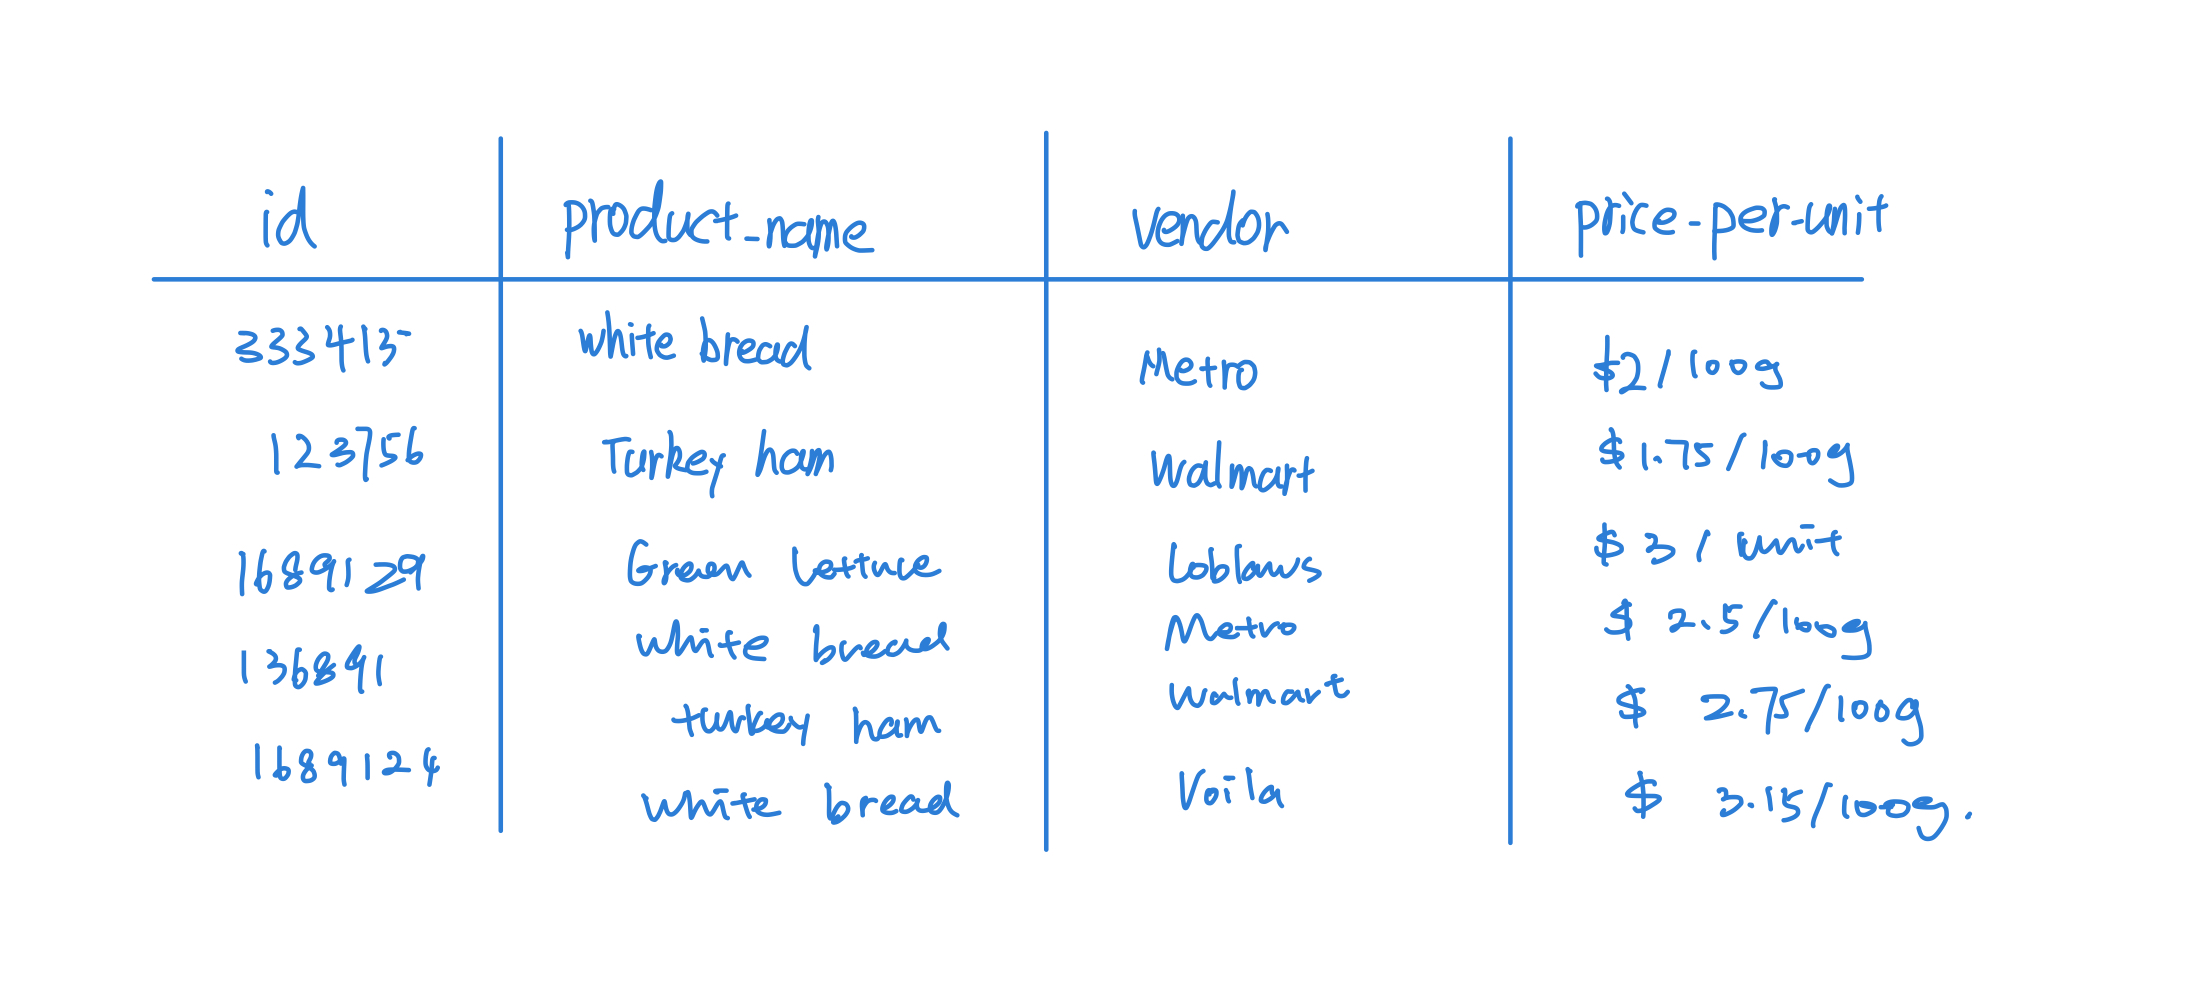 id product_name vendor price-per-unit
333415 white bread Metro $2/100g
123756 Turkey ham Walmart $1.75/100g
1689129 Green Lettuce Loblaws $3/unit
136891 white bread Metro $2.5/100g
turkey ham Walmart $2.75/100g
1689124 white bread Voila $3.15/100g.